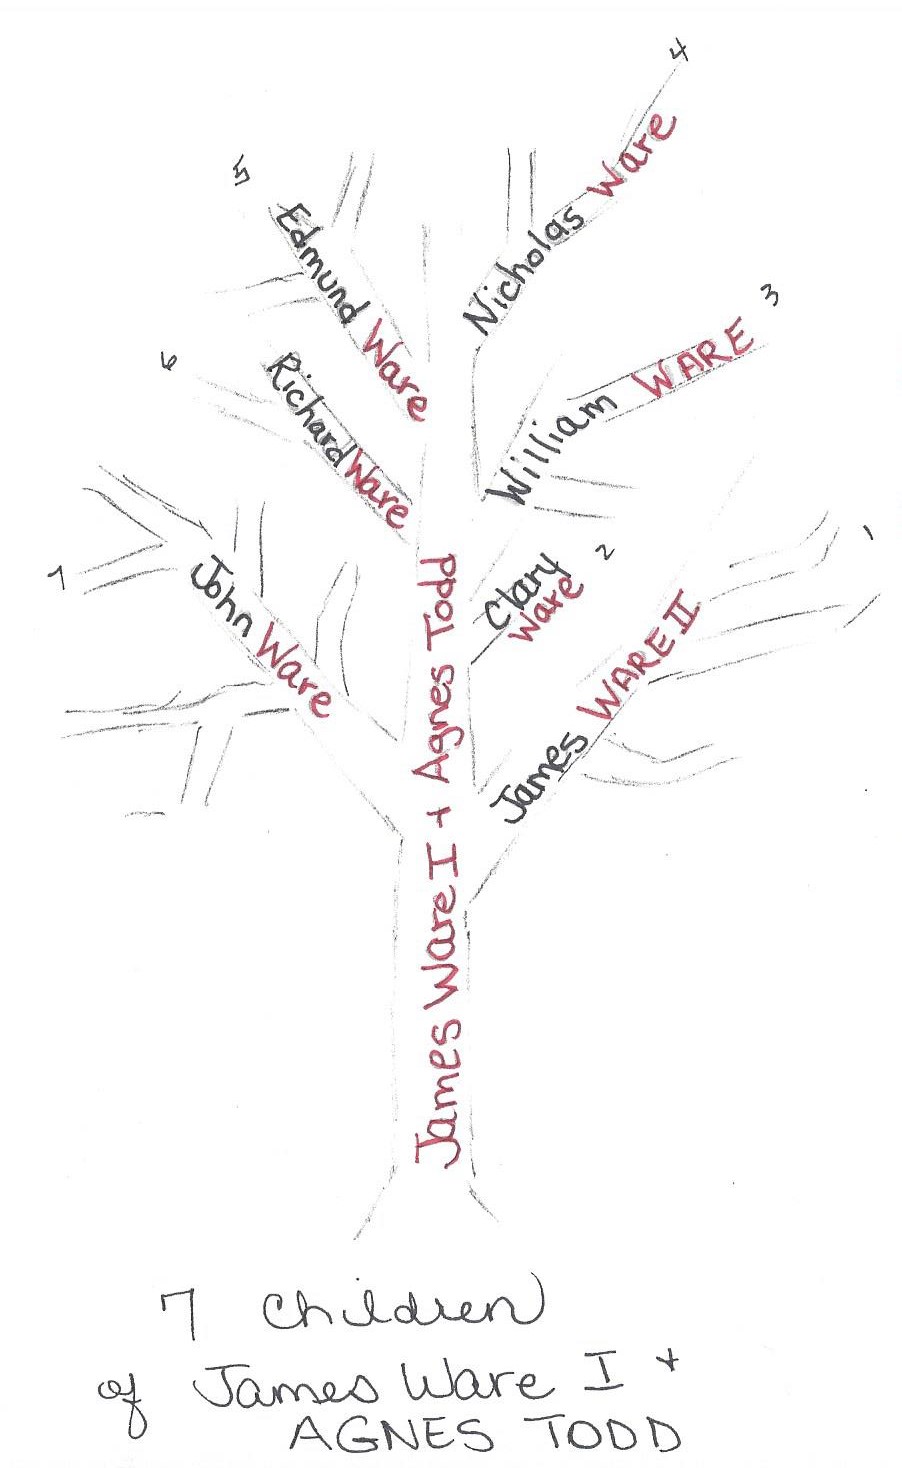 4
Nicholas Ware
5
Edmund Ware
3
William WARE
6
Richard Ware
1
James WARE II
2
Clary
Ware
7
John Ware
James Ware I + Agnes Todd
7 Children
of James Ware I +
AGNES TODD